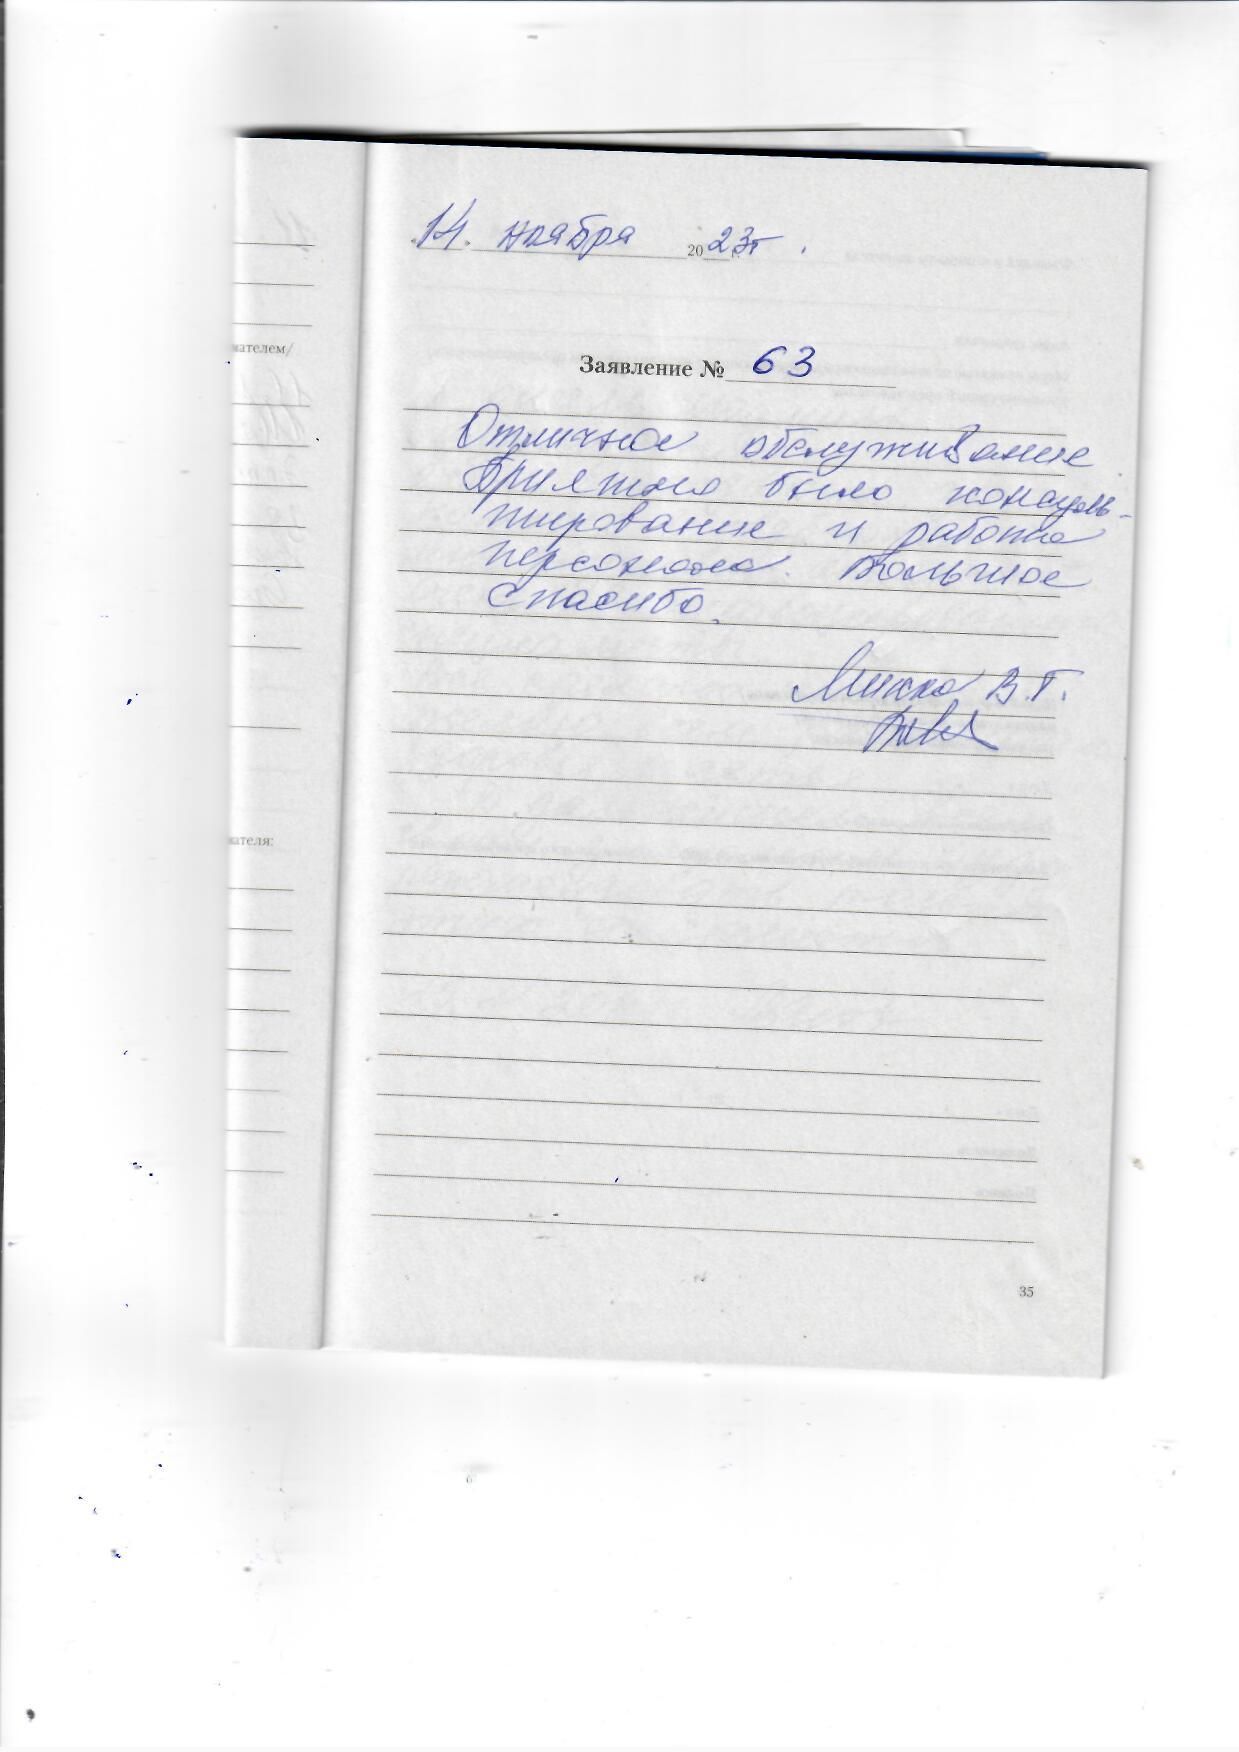 14. ноября 2023г.
мателем/
Заявление № 63
Отличное обслуживание
Приятно было консуль-
тирование и работа
персонала. Большое
спасибо.
В.Г.
мателя:
35